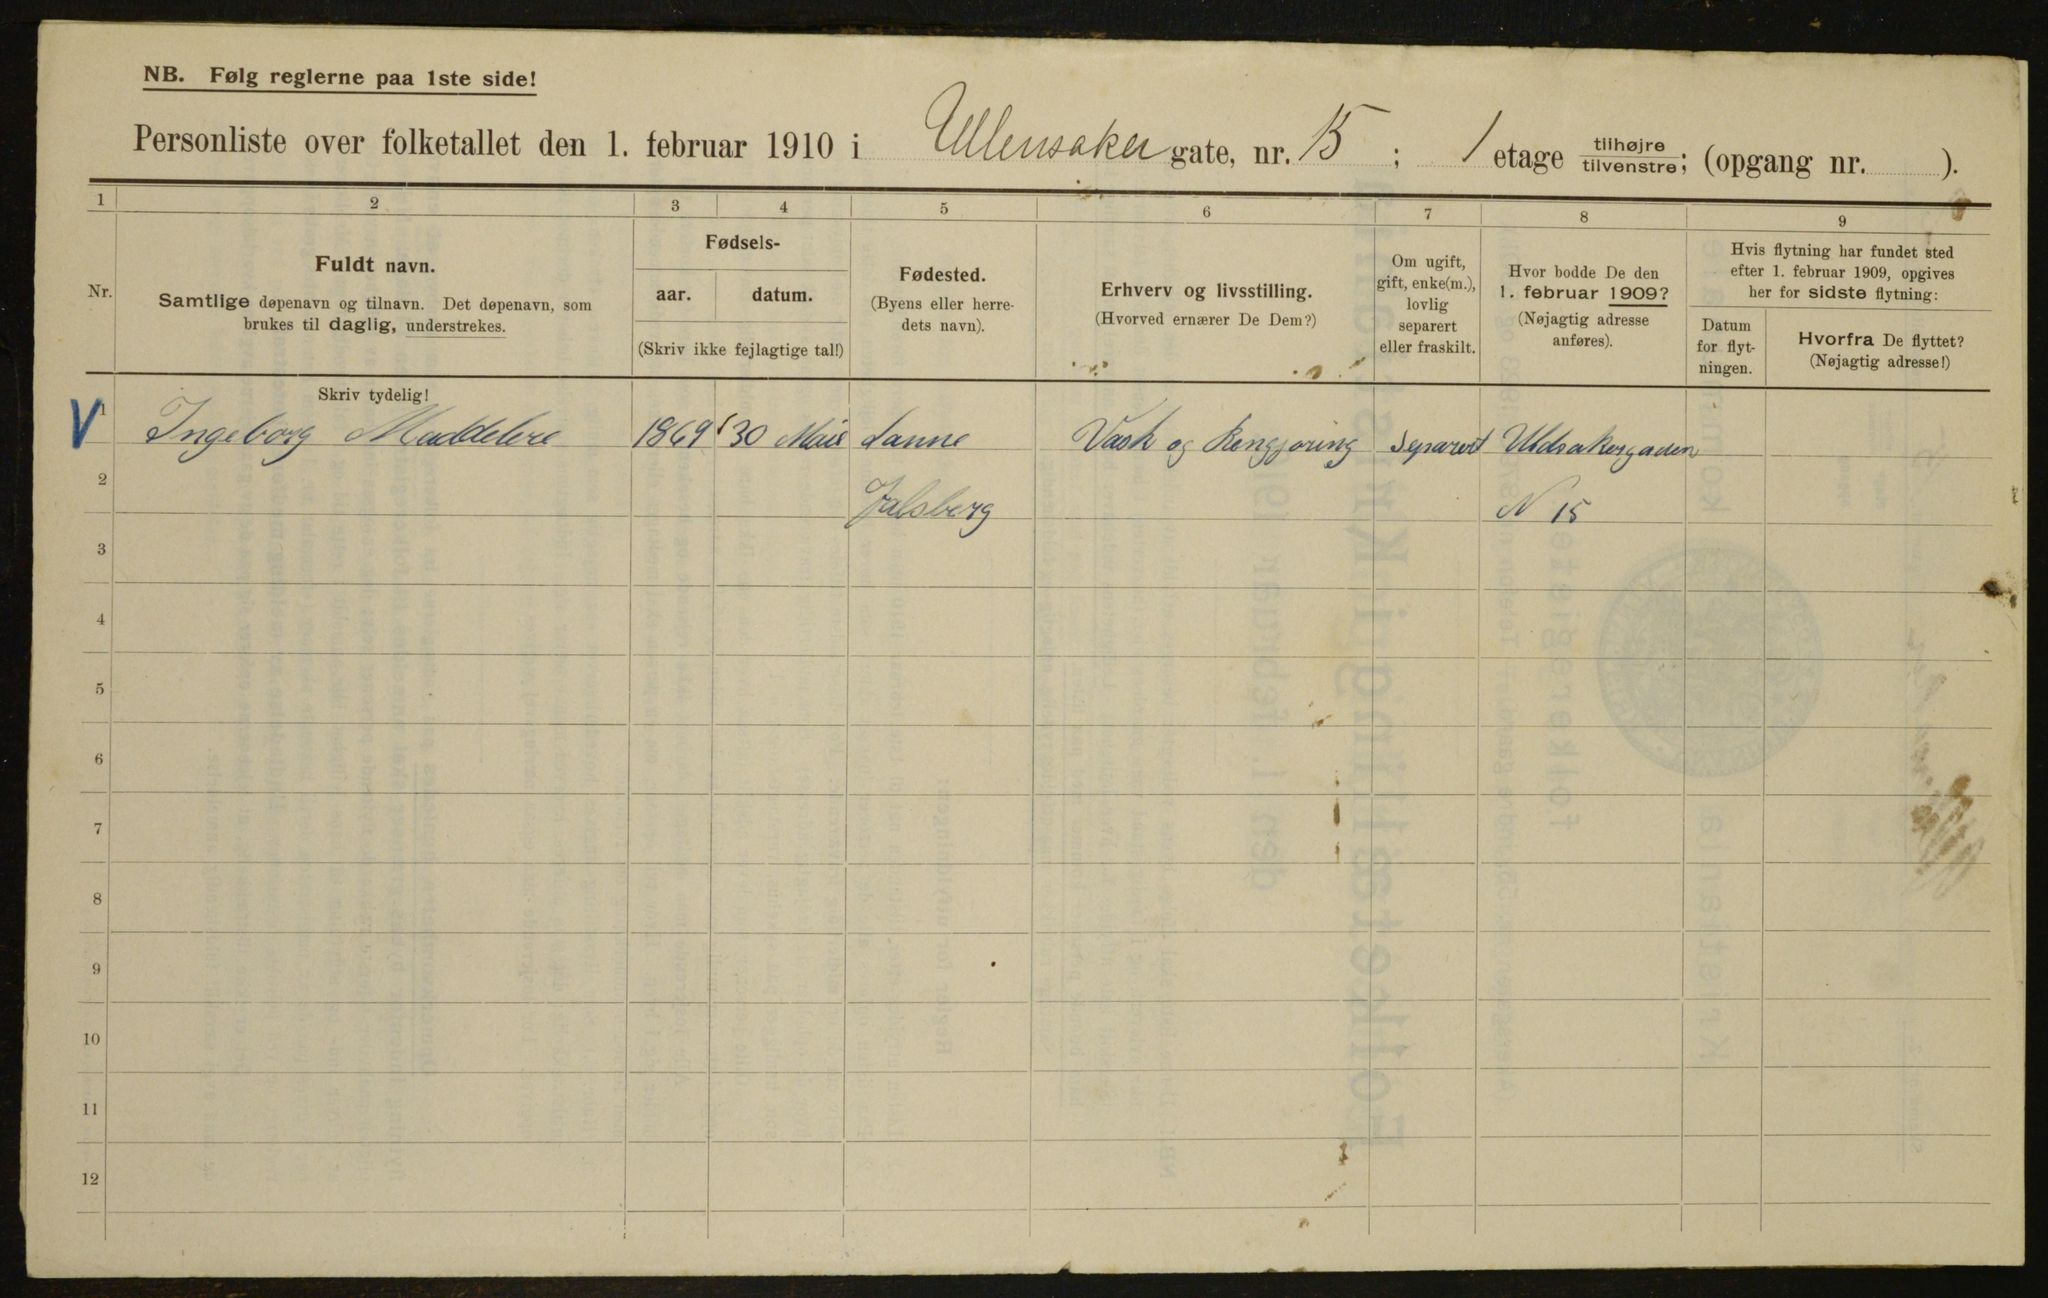 NB. Følg reglerne paa 1ste side!
Personliste over folketallet den 1. februar 1910 i Ullensaker gate, nr. 15 ; 1 etage tilhøjre tilvenstre; (opgang nr. ).
1 2 3 4 5 6 7 8 9
Nr.
Fuldt navn.
Samtlige døpenavn og tilnavn. Det døpenavn, som
brukes til daglig, understrekes.
Fødsels-
aar. datum.
(Skriv ikke fejlagtige tal!)
Fødested.
(Byens eller herre-
dets navn).
Erhverv og livsstilling.
(Hvorved ernærer De Dem?)
Om ugift,
gift, enke(m.),
lovlig
separert
eller fraskilt.
Hvor bodde De den
1. februar 1909?
(Nøjagtig adresse
anføres).
Hvis flytning har fundet sted
efter 1. februar 1909, opgives
her for sidste flytning:
Datum
for flyt-
ningen.
Hvorfra De flyttet?
(Nøjagtig adresse!)
Skriv tydelig!
V 1 Ingeborg 1869 30 Vask og Rengjøring separert
2 Jalsberg N 15
3
4
5
6
7
8
9
10
11
12